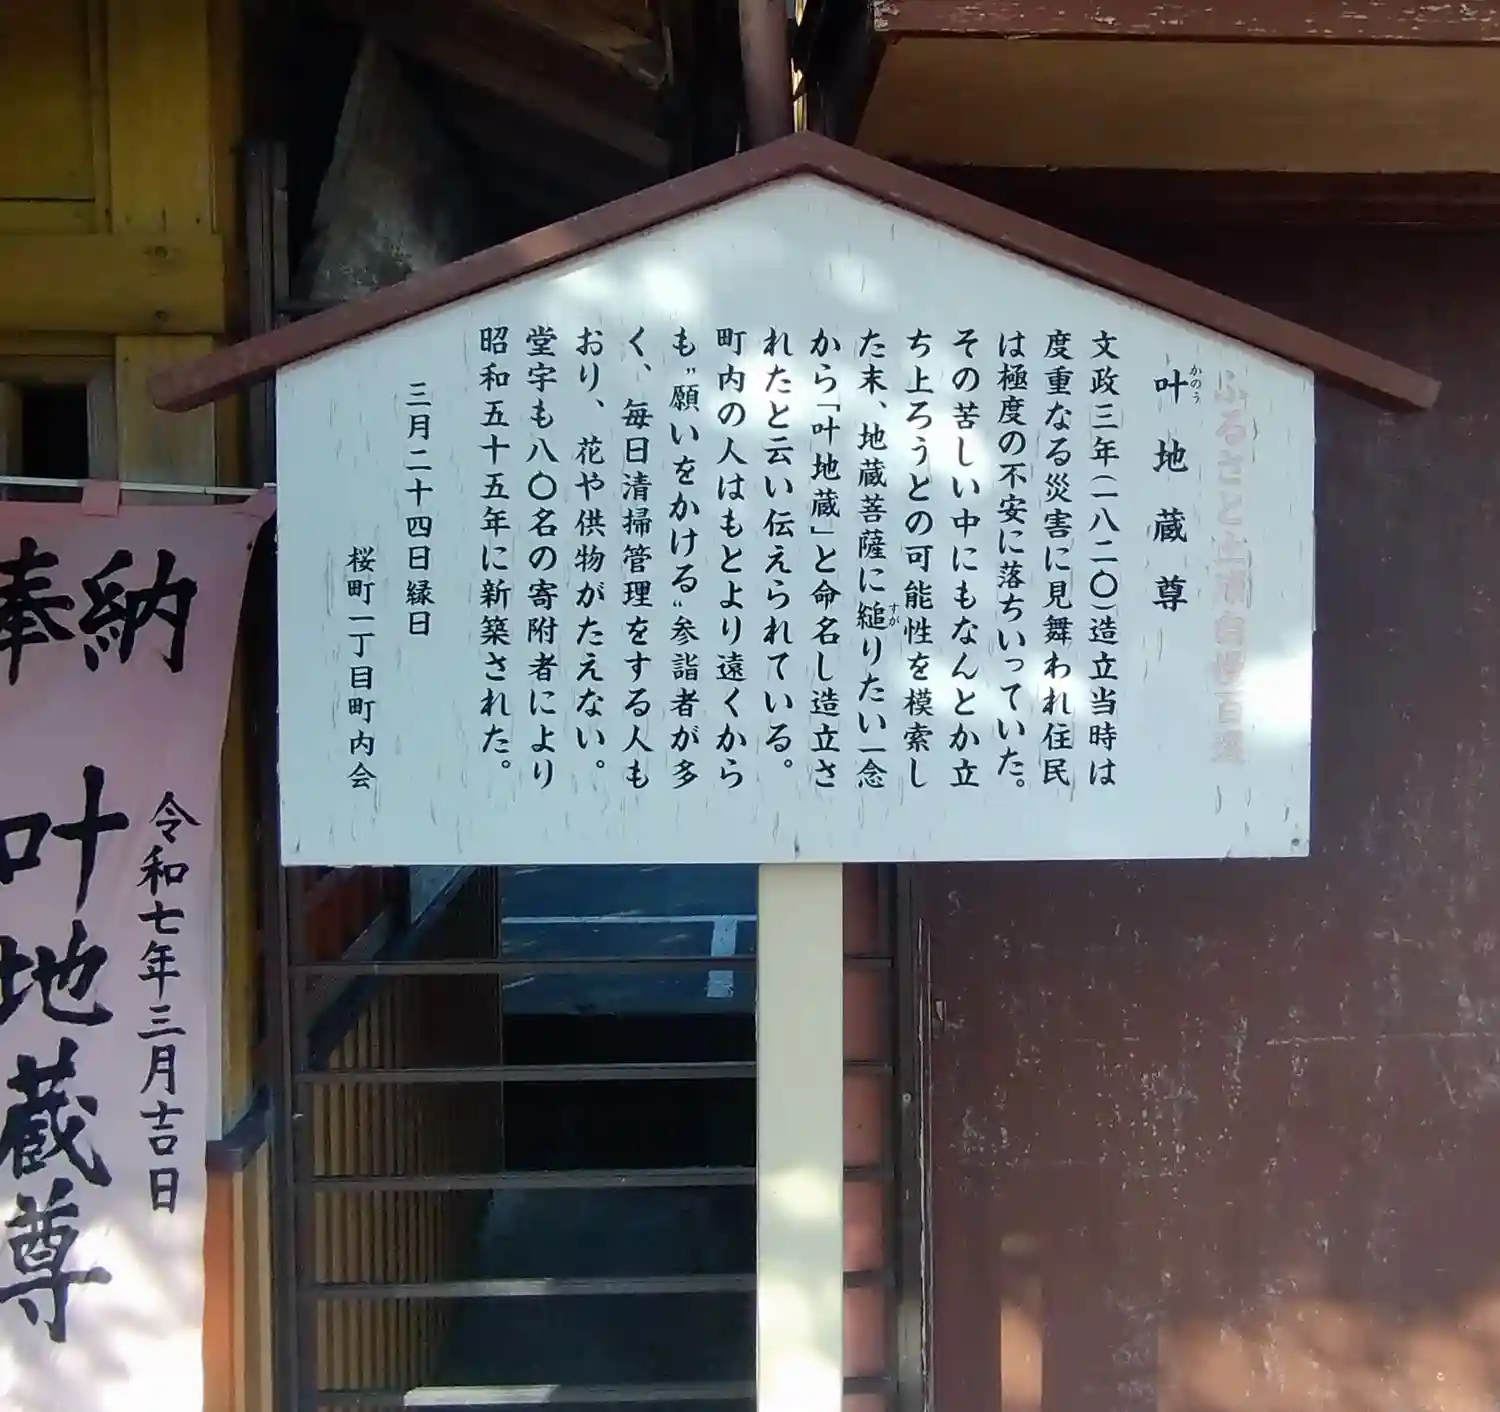 ふるさと土浦自慢百選
かのう
叶地蔵尊
文政三年(一八二〇)造立当時は
度重なる災害に見舞われ住民
は極度の不安に落ちいっていた。
その苦しい中にもなんとか立
ち上ろうとの可能性を模索し
すが
た末、地蔵菩薩に縋りたい一念
から「叶地蔵」と命名し造立さ
れたと云い伝えられている。
町内の人はもとより遠くから
も〝願いをかける〟参詣者が多
く、毎日清掃管理をする人も
おり、花や供物がたえない。
堂宇も八〇名の寄附者により
昭和五十五年に新築された。
三月二十四日縁日
桜町一丁目町内会
奉納
令和七年三月吉日
叶地蔵尊